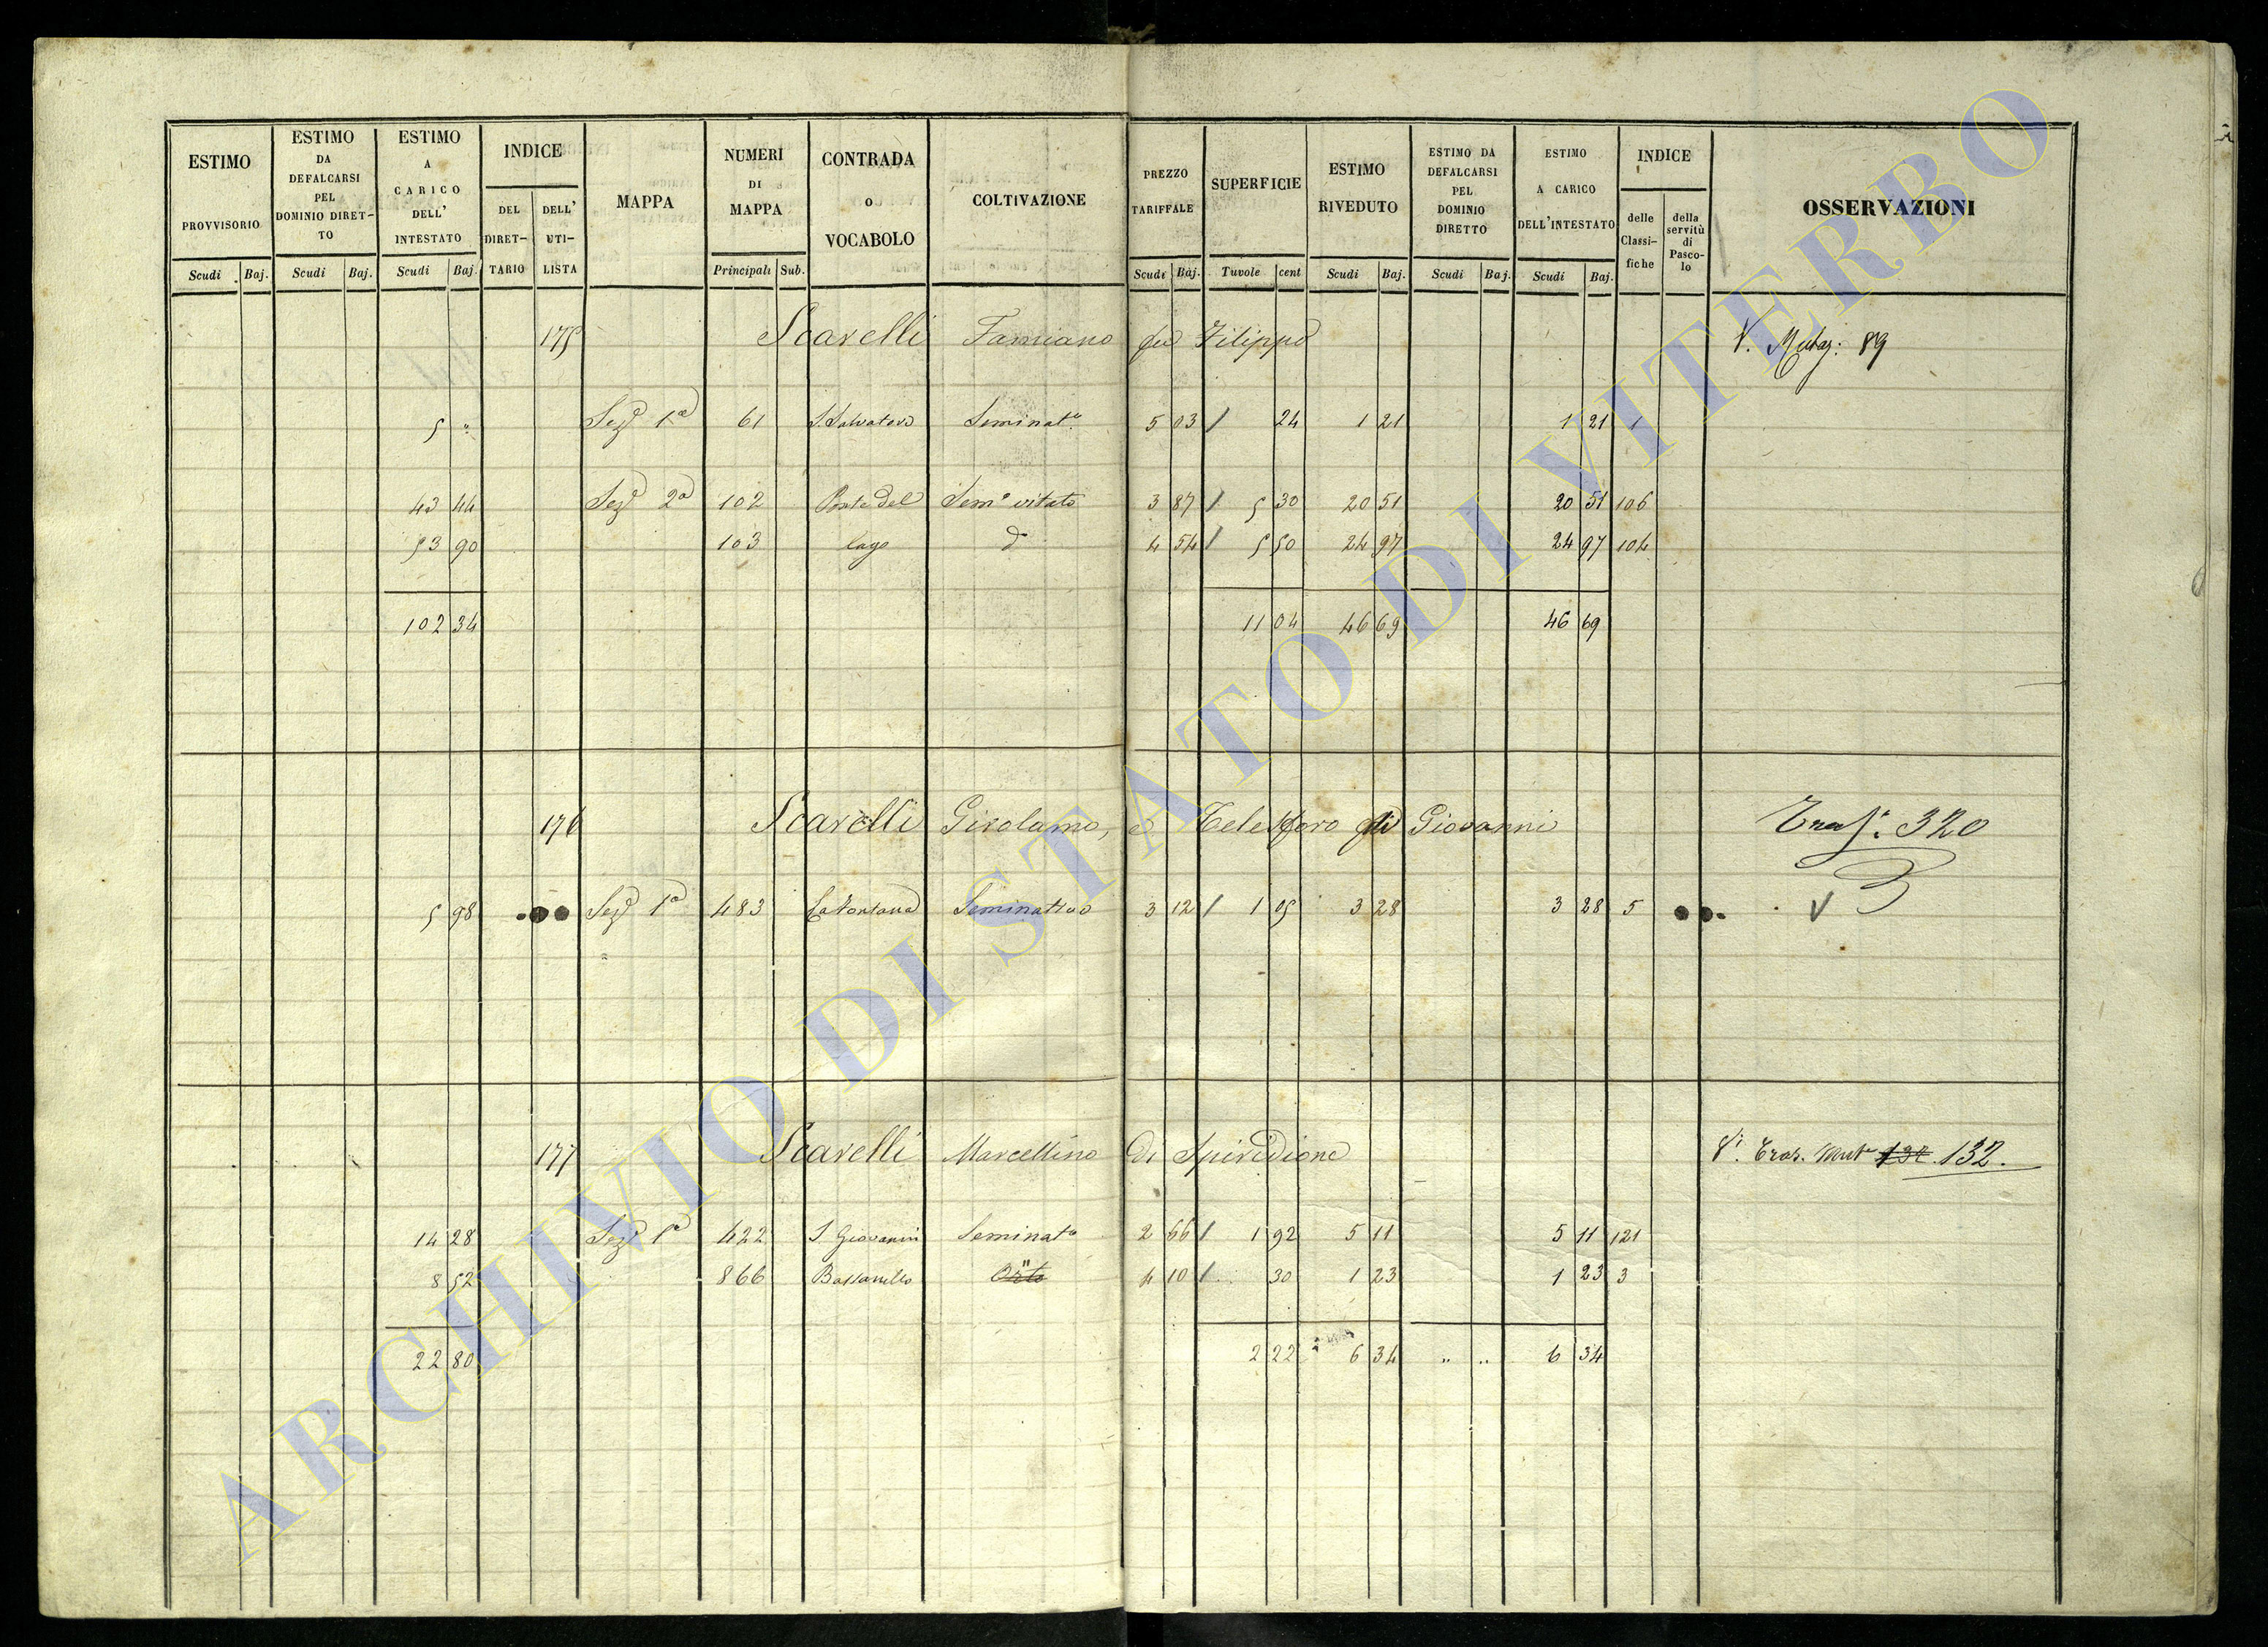 ESTIMO PROVVISORIO
ESTIMO DA DEFALCARSI PEL DOMINIO DIRET-TO
ESTIMO A CARICO DELL' INTESTATO
INDICE
DEL DIRET-TARIO
DELL' UTI-LISTA
MAPPA
NUMERI DI MAPPA
CONTRADA o VOCABOLO
COLTIVAZIONE
PREZZO TARIFFALE
SUPERFICIE
ESTIMO RIVEDUTO
ESTIMO DA DEFALCARSI PEL DOMINIO DIRETTO
ESTIMO A CARICO DELL'INTESTATO
INDICE
delle Classi-fiche
della servitù di Pasco-lo
OSSERVAZIONI
Scudi Baj. Scudi Baj. Scudi Baj. Principali Sub. Scudi Baj. Tavole cent Scudi Baj. Scudi Baj. Scudi Baj.
175 Scarelli Famiano fu Filippo V. Mutaz: 89
5 " Sez.e 1a 61 S. Salvatore Seminat.o 5 03 / 24 1 21 1 21 1
43 44 Sez.e 2a 102 Ponte del Sem.o vitato 3 87 / 5 30 20 51 20 51 106
53 90 103 lago d 4 54 / 5 50 24 97 24 97 104
102 34 11 04 46 69 46 69
176 Scarelli Girolamo, e Telesforo di Giovanni Trasp. 320
5 98 Sez.e 1a 483 La Fontana Seminativo 3 12 / 1 05 3 28 3 28 5 V
177 Scarelli Marcellino di Spiridione V. Tras. Mut. 132.
14 28 Sez.e 1a 422 S Giovanni Seminat.o 2 66 / 1 92 5 11 5 11 121
8 52 866 Bassanello Orto 4 10 / 30 1 23 1 23 3
22 80 2 22 6 34 " " 6 34
ARCHIVIO DI STATO DI VITERBO